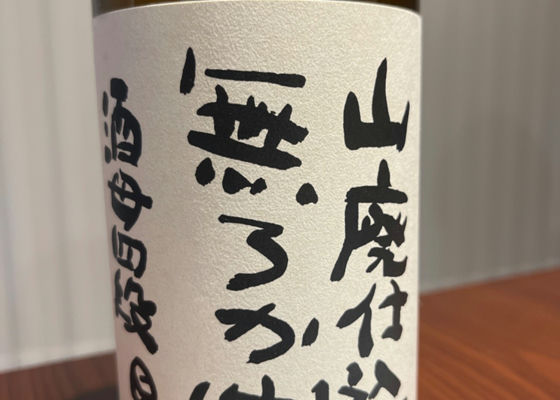 山廃仕込
無ろか生
酒母日数四